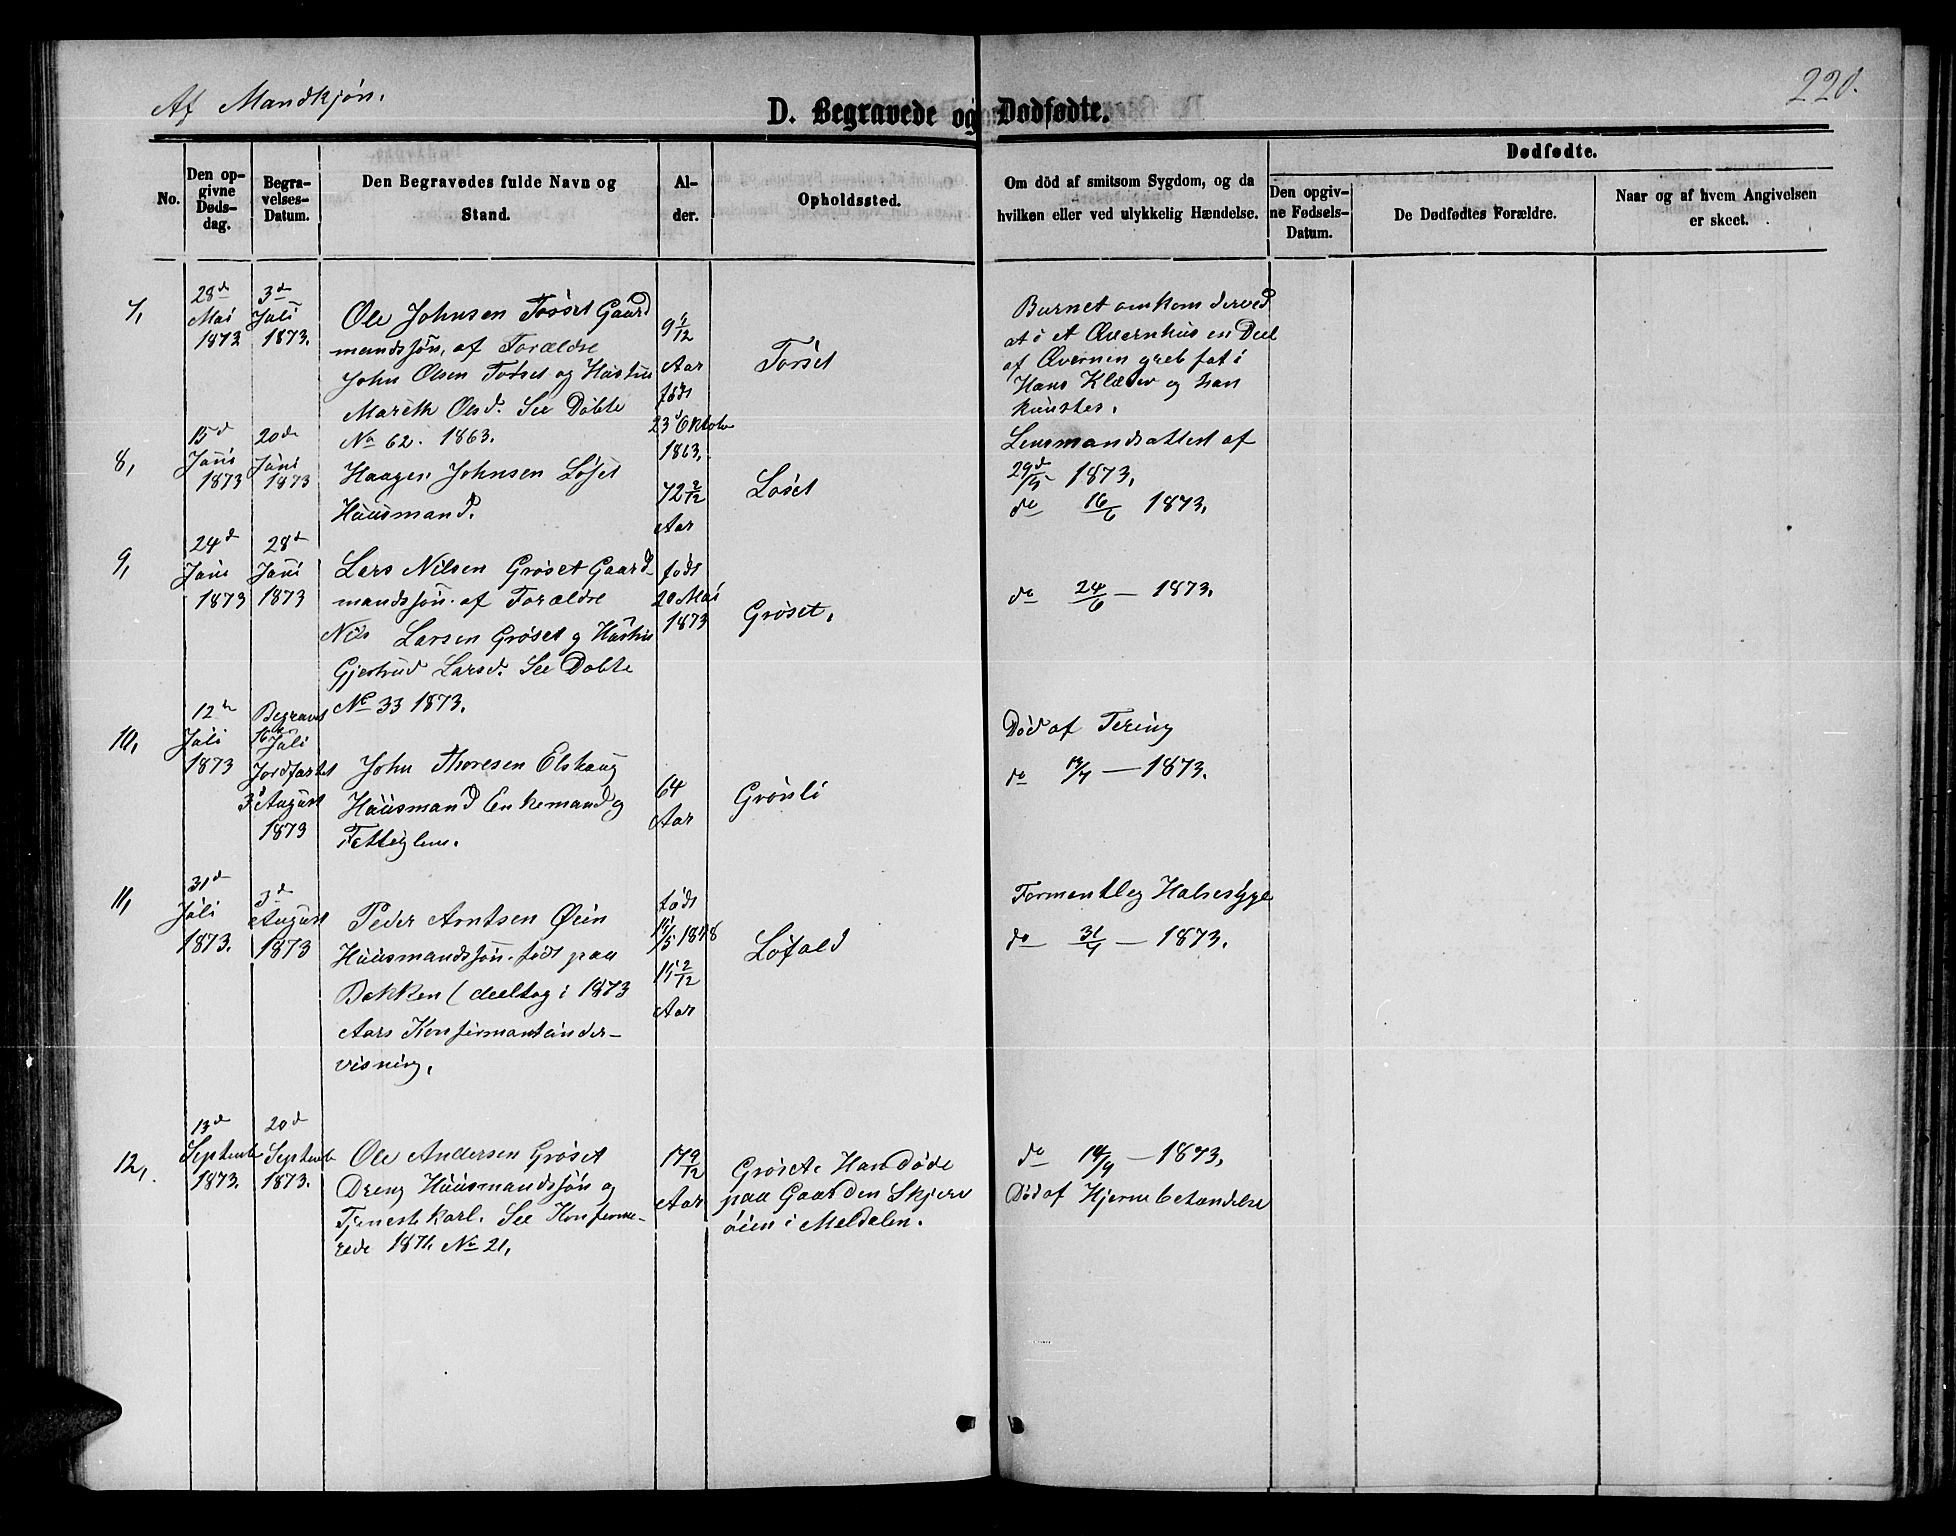 Af Mandkjøn.
220.
D. Begravede og Dødfødte.
No.
Den op-
givne
Døds-
dag.
Begra-
velses-
Datum.
Den Begravedes fulde Navn og
Stand.
Al-
der.
Opholdssted.
Om död af smitsom Sygdom, og da
hvilken eller ved ulykkelig Hændelse.
Dødfødte.
Den opgiv-
ne Fødsels-
Datum.
De Dødfødtes Forældre.
Naar og af hvem Angivelsen
er skeet.
7,
28d
Mai
1873
3d
Juli
1873.
Ole Johnsen Torset Gaard
mandssøn, af Forældre
John Olsen Torset og Hustru
Mareth Olsd. See Døbte
No 62. 1863.
9 7/12
Aar
født
23d Oktobr
1863.
Torset
Barnet omkom derved
at i et Qvernhus en Deel
af Qvernen greb fat i
Hans Klæder og han
knustes.
Lensmandsattest af
29d/5 1873.
8,
15d
Juni
1873
20de
Juni
1873
Haagen Johnsen Løset
Huusmand.
72 2/12
Aar
Løset
do 16/6 1873.
9,
24d
Juni
1873
28d
Juni
1873
Lars Nilsen Grøset Gaard-
mandssøn. af Forældre
Nils Larsen Grøset og Hustru
Gjertrud Larsd. See Døbte
No 33 1873.
født
20 Mai
1873
Grøset.
do 24/6 — 1873.
10,
12te
Juli
1873
Begravet
16de Juli
Jordfæstet
3d August
1873
John Thoresen Elshaug
Huusmand Enkemand og
Fattiglem.
64
Aar
Grønli
Død af Tering
do 13/7 — 1873.
11,
31d
Juli
1873.
3d
August
1873
Peder Arntsen Øien
Huusmandssøn. født paa
Bakken (deeltog i 1873
Aars Konfirmantunder-
visning.
født
15 2/12
Aar
Løfald
Formentleg Halsesyge
do 31/7 — 1873.
12,
13d
Septembr
1873.
20d
Septembr
1873.
Ole Andersen Grøset
Dreng Huusmandssøn og
Tjenestekarl. See Konfirme-
rede 1871. No 21,
17 9/12
Aar
Grøset. Han døde
paa Gaarden Skjere
øien i Meldalen.
do 14/9 — 1873,
Død af Hjernebetændelse